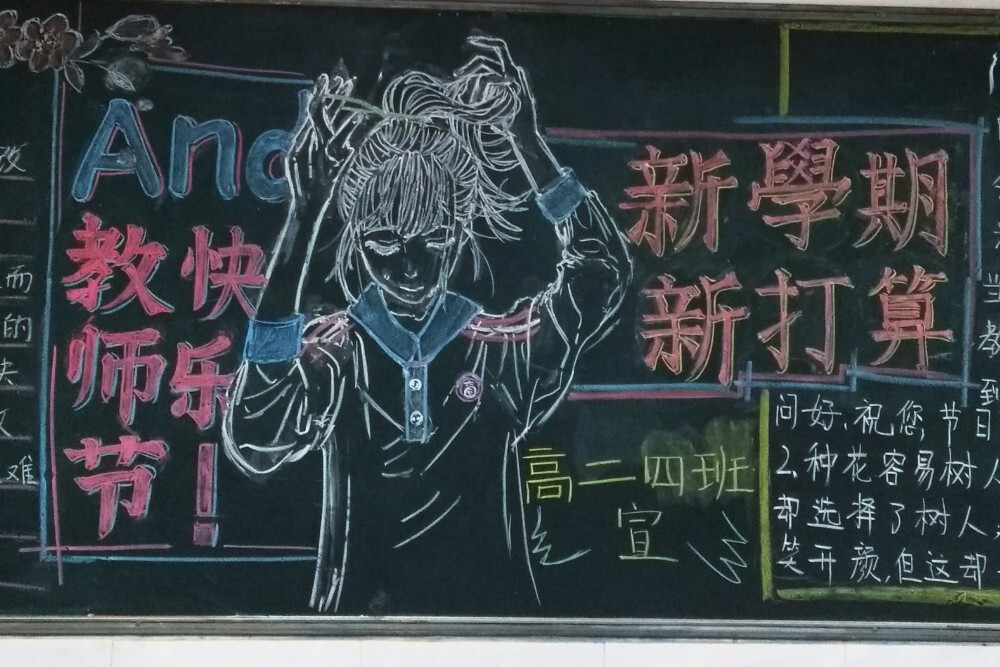 改
而
的
难
And
教快
师乐
节！
高
新學期
新打算
高二四班
宣
问好,祝您节日
2、种花容易树人
却选择了树人,
笑开颜,但这却
到